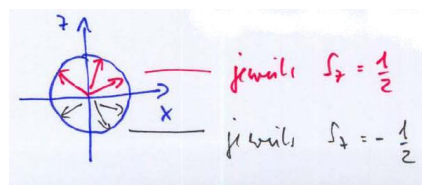 z
jeweils S_z = 1/2
x
jeweils S_z = - 1/2